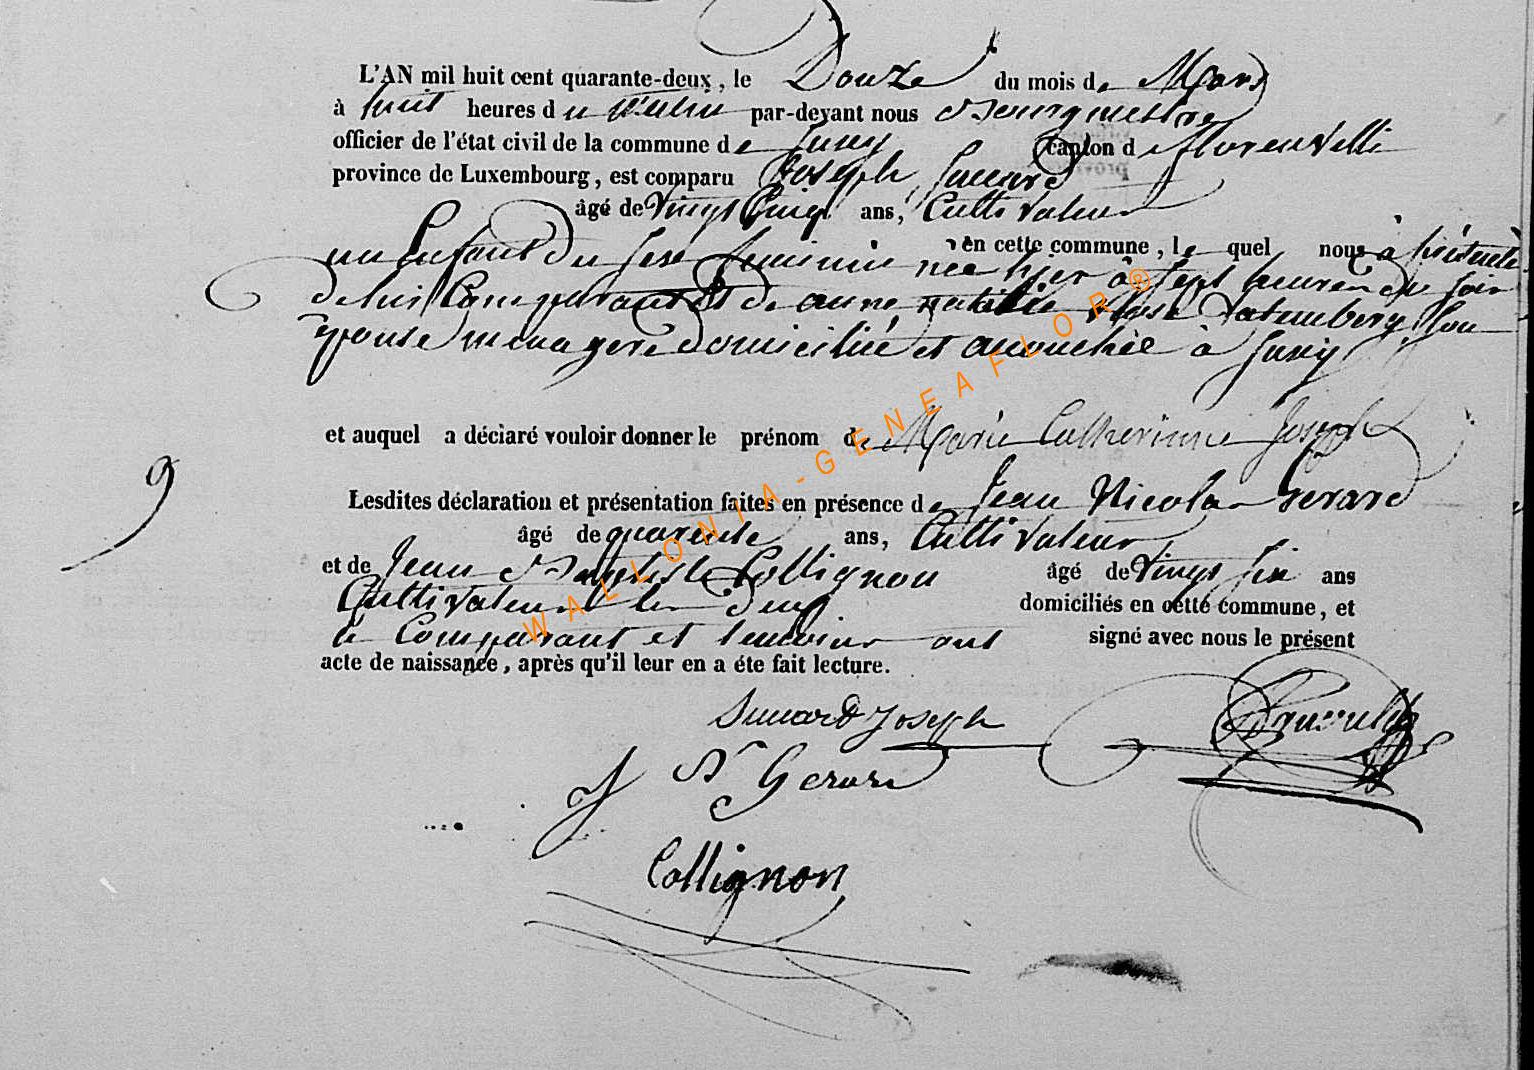 L'AN mil huit cent quarante-deux, le Douze du mois de Mars
à huit heures du matin par-devant nous Bourgmestre
officier de l'état civil de la commune de Suxy canton de florenville
province de Luxembourg, est comparu Joseph Suenard
âgé de Vingt Cinq ans, Cultivateur
en cette commune, le quel nous à présenté
un Enfant du sexe feminin née hier à sept heures du soir
de lui Comparant et de anne natalie Rose son
epouse menagere domiciliée et accouchée à Suxy
et auquel a déclaré vouloir donner le prénom de Marie Catherinne Joseph
9
Lesdites déclaration et présentation faites en présence de Jean Nicolas Gerard
âgé de quarente ans, Cultivateur
et de Jean Baptiste Collignon âgé de Vingt six ans
Cultivateur les deux domiciliés en cette commune, et
le Comparant et temoins ont signé avec nous le présent
acte de naissance, après qu'il leur en a éte fait lecture.
Suenard Joseph
J N Gerard
Collignon
WALLONIA-GENEAFLOR®